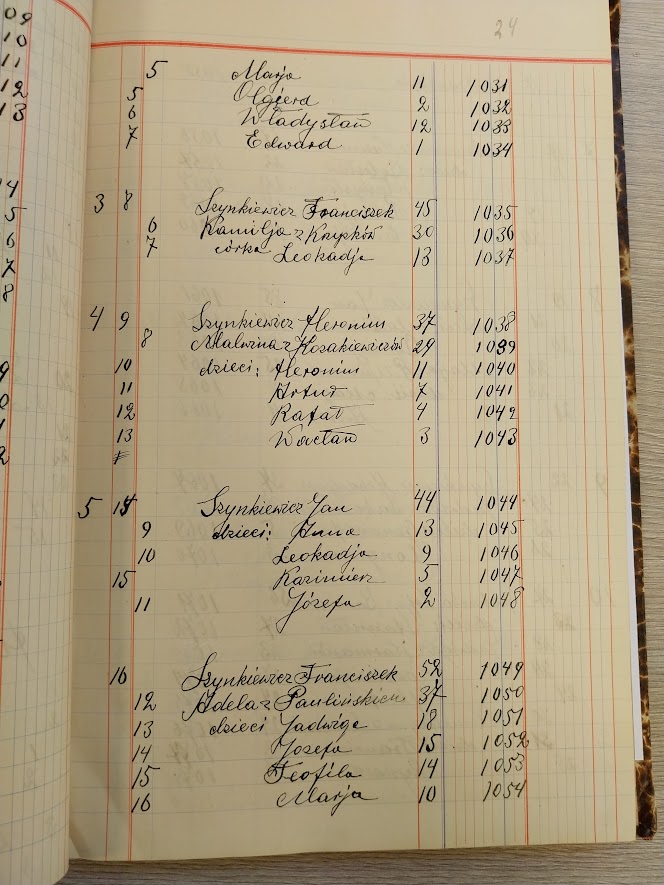 09
10
11
12
13
14
5
6
7
8
9
0
1
2
24
5 Marja 11 1031
5 Olgierd 2 1032
6 Władysław 12 1033
7 Edward 1 1034
3 8 Szynkiewicz Franciszek 45 1035
6 Kamilja z Krupków 30 1036
7 córka Leokadja 13 1037
4 9 Szynkiewicz Heronim 37 1038
8 Malwina z Kozakiewiczów 29 1039
10 dzieci: Heronim 11 1040
11 Artur 7 1041
12 Rafał 4 1042
13 Wacław 3 1043
5 14 Szynkiewicz Jan 44 1044
9 dzieci: Anna 13 1045
10 Leokadja 9 1046
15 Kazimierz 5 1047
11 Józefa 2 1048
16 Szynkiewicz Franciszek 52 1049
12 Adela z 37 1050
13 dzieci Jadwiga 18 1051
14 Józefa 15 1052
15 Teofila 14 1053
16 Marja 10 1054